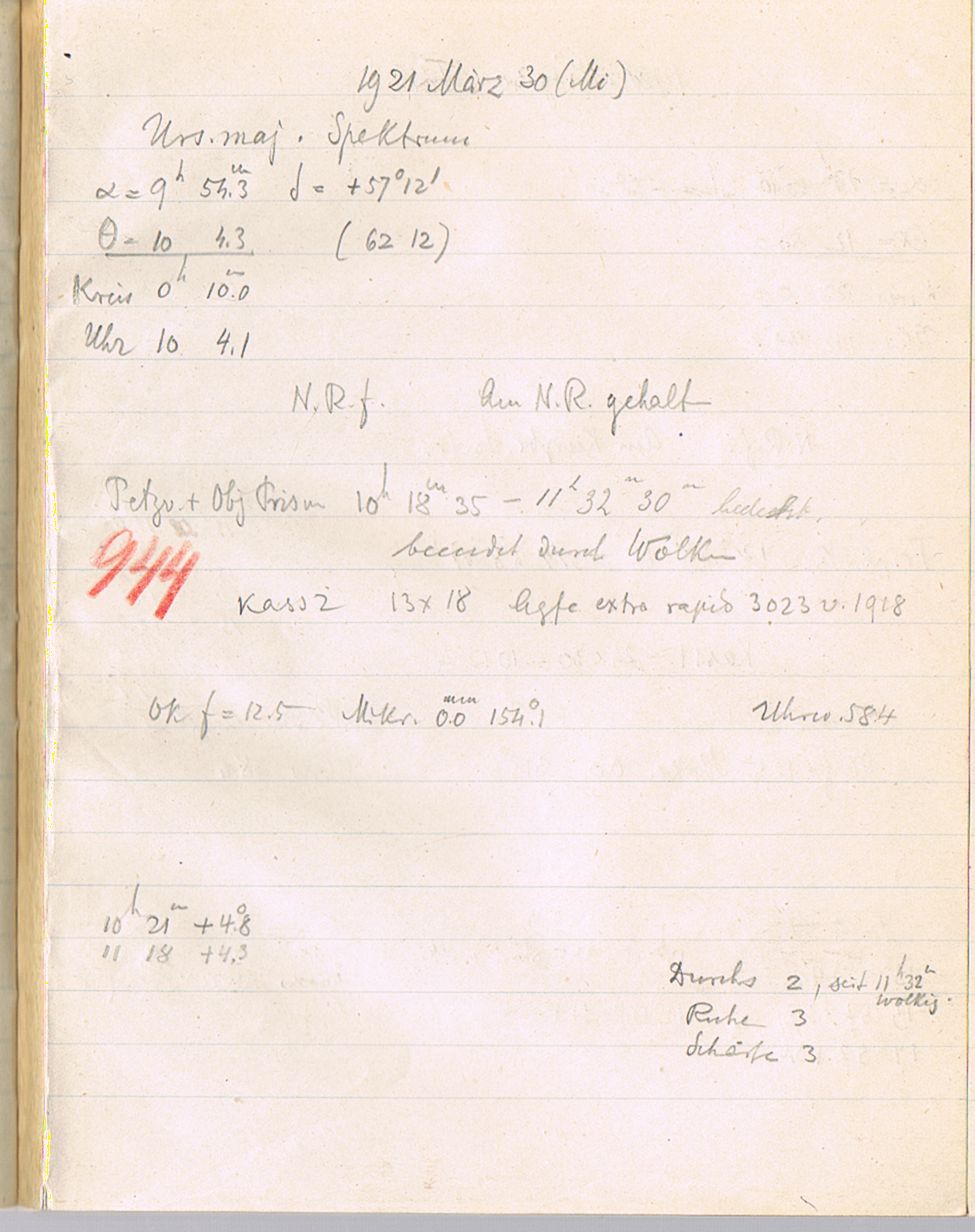 1921 März 30 (Mi)
Urs. maj. Spektrum
α = 9ʰ 54ᵐ.3 δ = +57°12'
θ = 10 4.3 (62 12)
Kreis 0ʰ 10ᵐ.0
Uhr 10 4.1
N.R.f. Am N.R. gehalt
Petzv. + Obj Prism 10ʰ 18ᵐ 35 – 11ʰ 32ᵐ 30ᵐ bedeckt,
beendet durch Wolken
944
Kass 2 13 x 18 Agfa extra rapid 3023 v. 1918
Ok f = 12.5 Mikr. 0.0ᵐᵐ 154°.1 Uhrw. 584
10ʰ 21ᵐ +4°.8
11 18 +4.3
Durchs 2, seit 11ʰ 32ᵐ
wolkig.
Ruhe 3
Schärfe 3